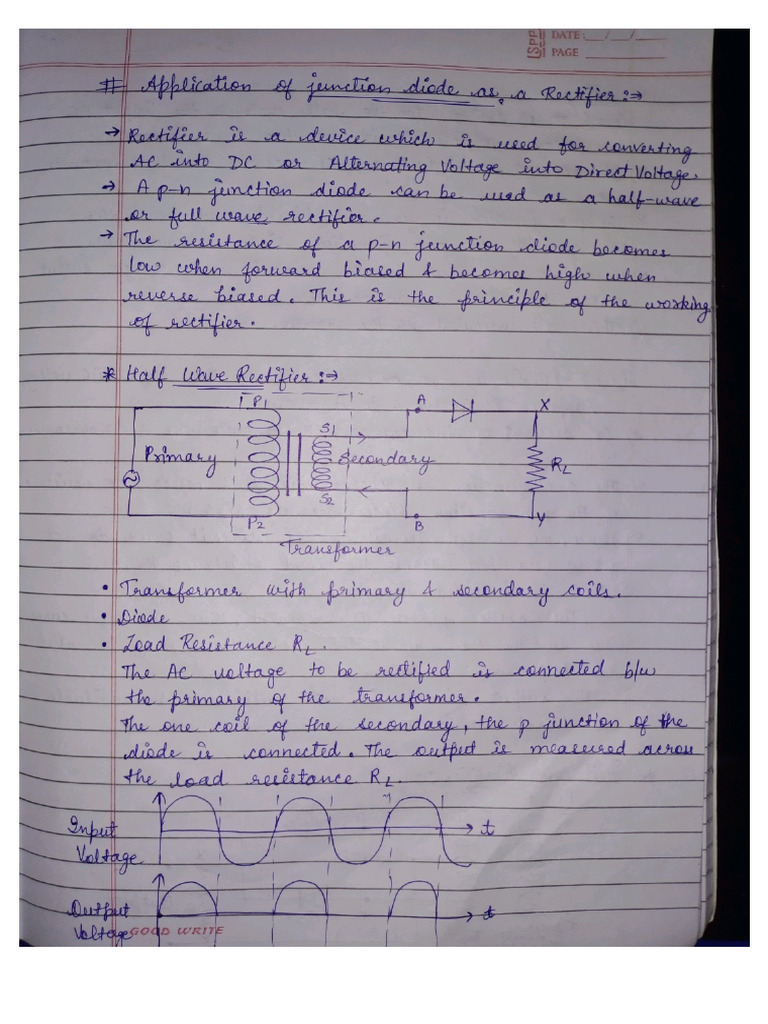 SPP
DATE: __/__/__
PAGE
# Application of junction diode as a Rectifier:→
→ Rectifier is a device which is used for converting
AC into DC or Alternating Voltage into Direct Voltage.
→ A p-n junction diode can be used as a half-wave
or full wave rectifier.
→ The resistance of a p-n junction diode becomes
low when forward biased & becomes high when
reverse biased. This is the principle of the working
of rectifier.
* Half Wave Rectifier:→
P1
A
X
S1
Primary
Secondary
RL
S2
P2
B
Y
Transformer
• Transformer with primary & secondary coils.
• Diode
• Load Resistance RL.
The AC voltage to be rectified is connected b/w
the primary of the transformer.
The one coil of the secondary, the p junction of the
diode is connected. The output is measured across
the load resistance RL.
Input
Voltage
t
Output
Voltage
t
GOOD WRITE